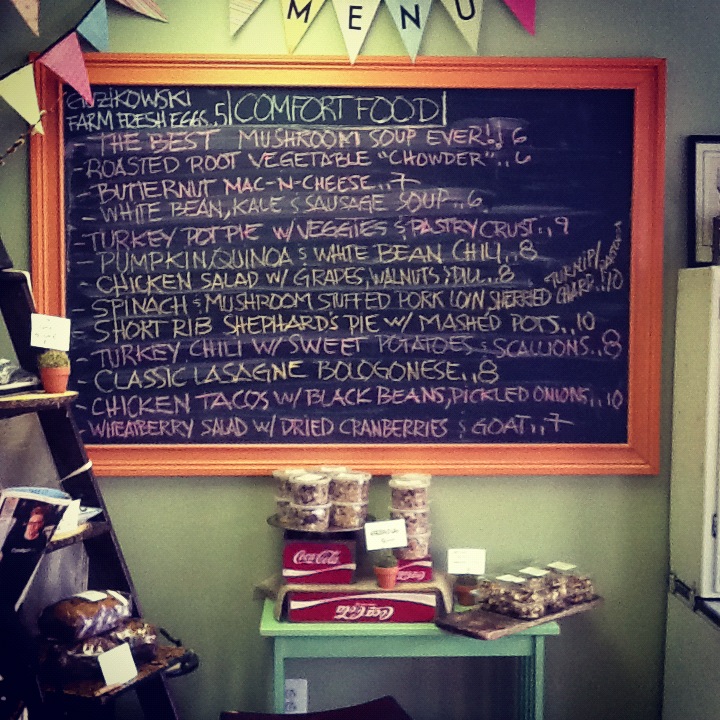 MENU
GUZIKOWSKI
FARM FRESH EGGS.5
COMFORT FOOD
- THE BEST MUSHROOM SOUP EVER!! 6
- ROASTED ROOT VEGETABLE "CHOWDER"..6
- BUTTERNUT MAC-N-CHEESE..7
- WHITE BEAN, KALE & SAUSAGE SOUP..6
- TURKEY POT PIE W/VEGGIES & PASTRY CRUST..9
- PUMPKIN/QUINOA & WHITE BEAN CHILI..8
- CHICKEN SALAD W/ GRAPES, WALNUTS & DILL..8
- SPINACH & MUSHROOM STUFFED PORK LOIN SHERRIED TURNIP/ CHARD..10
- SHORT RIB SHEPHARD'S PIE W/ MASHED POTS..10
- TURKEY CHILI W/ SWEET POTATOES & SCALLIONS..8
- CLASSIC LASAGNE BOLOGONESE..8
- CHICKEN TACOS W/ BLACK BEANS, PICKLED ONIONS..10
- WHEATBERRY SALAD W/ DRIED CRANBERRIES & GOAT..7
Coca-Cola
Coca-Cola
Coca-Cola